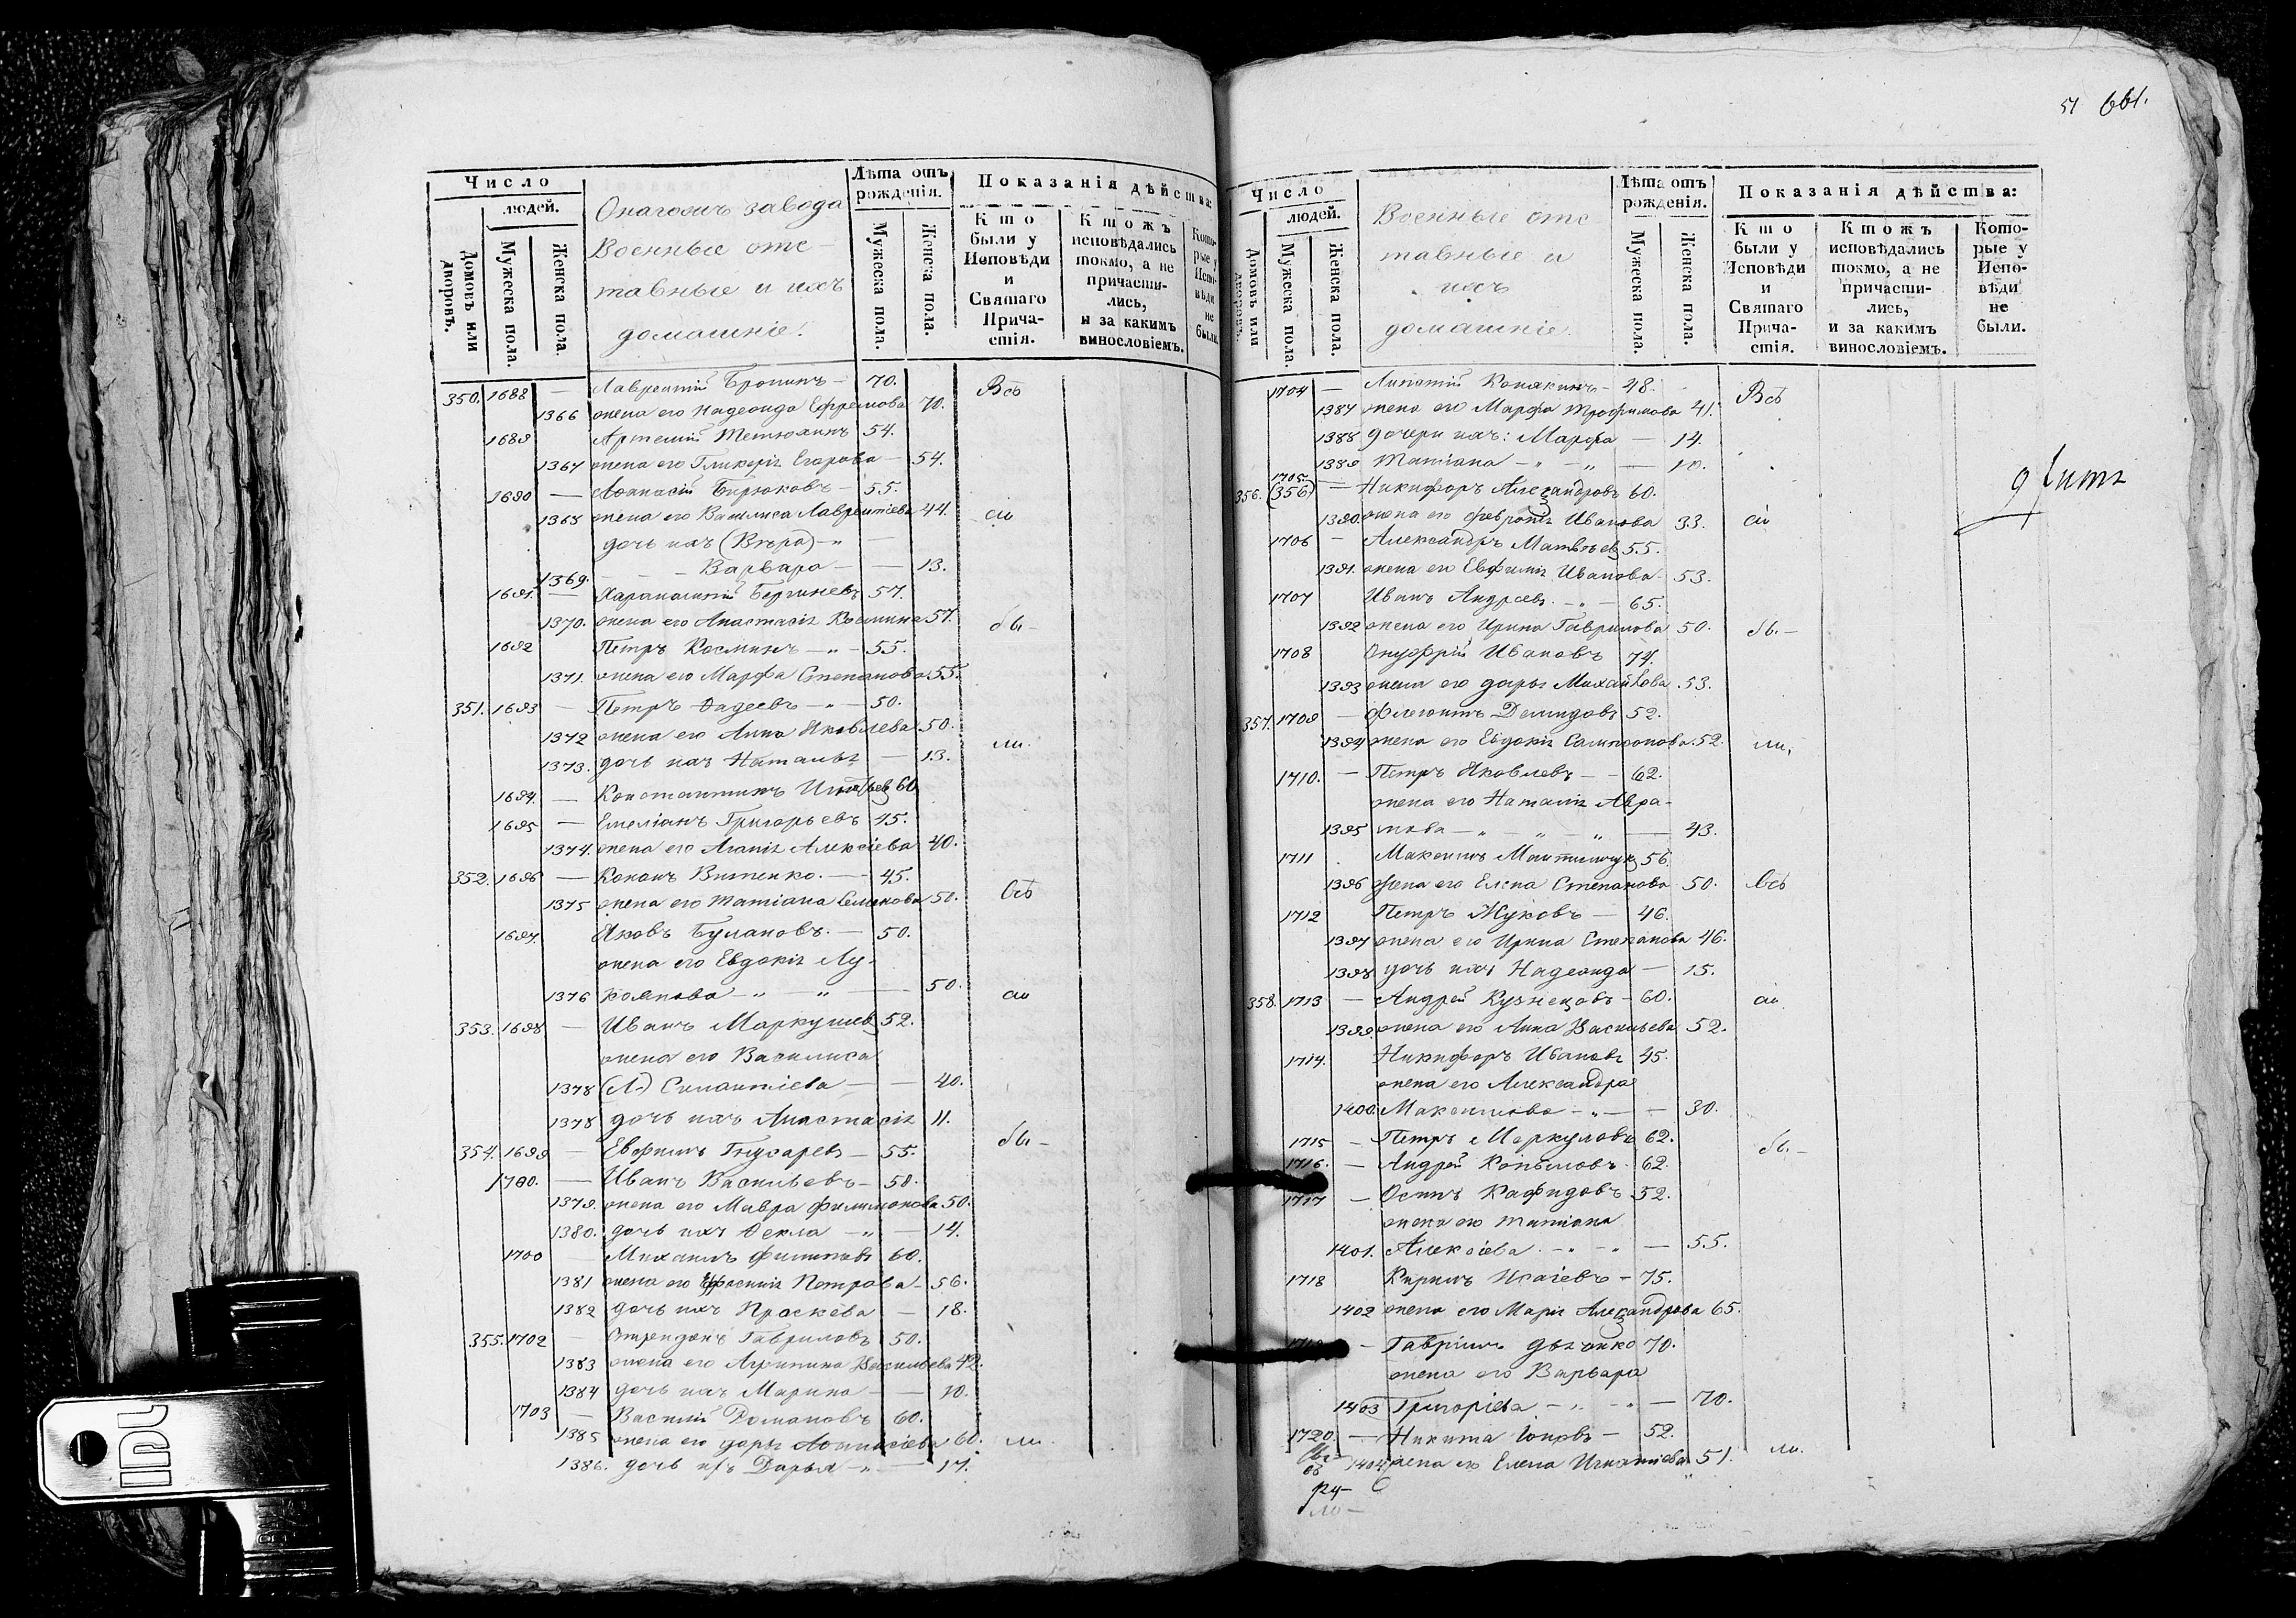 51 661.
Число
людей.
Домовъ или дворовъ.
Мужеска пола.
Женска пола.
завода
Военные отс-
тавные и ихъ
домашніе.
Лѣта отъ рожденія.
Мужеска пола.
Женска пола.
Показанія дѣйства:
Кто были у Исповѣди и Святаго Прича-стія.
Ктожъ исповѣдались токмо, а не причасти-лись, и за какимъ винословіемъ.
Кото-рые у Испо-вѣди не были.
350. 1688 — Лаврентій — 70. Всѣ
1366 жена его Надежда Ефремова 70.
1689 Артемій 54.
1367 жена его Гликерія Егорова — 54.
1690 — Аѳанасій Бирюковъ — 55.
1368 жена его Василиса Лаврентіева 44. сіи
дочь ихъ (Вѣра) — " —
1369. — — Варвара — — 13.
1691. — 57.
1370. жена его Анастасія Космина 57. бы-
1692 Петръ Косминъ — " — 55.
1371. жена его Марфа Степанова 55.
351. 1693 — Петръ Ѳадеевъ — " — 50.
1372 жена его Анна Яковлева 50.
ли.
1373. дочь ихъ Наталья — 13.
1694. — Константинъ 60
1695 — Емеліанъ Григорьевъ 45.
1374. жена его Агапія Алексіева 40.
352. 1696 — Кононъ Витенко. — 45.
1375 жена его Татіана Семенова 50. всѣ
1697. Яковъ Булановъ. — 50.
жена его Евдокія Лу-
1376 — " " — 50. сіи
353. 1698 — Иванъ 52.
жена его Василиса
1378 (Л-) Силантіева — — 40.
1378 дочь ихъ Анастасія 11.
бы-
354. 1699 — Евфимъ Гнусаревъ — 55.
1700. — Иванъ Васильевъ — 58.
1379. жена его Мавра Филимонова 50.
1380. дочь ихъ Ѳекла — " — 14.
1700 — Михаилъ Филиповъ 60.
1381 жена его Петрова — 56.
1382 дочь ихъ Праскева — 18.
355. 1702 — Гавриловъ 50.
1383 жена его Агрипина Васильева 42.
1384 дочь ихъ Марина — — 10.
1703 — Василій Домановъ 60.
1385 жена его Дарья Аѳанасіева 60. ли.
1386. дочь ихъ Дарья — " — 17.
Число
людей.
Домовъ или дворовъ.
Мужеска пола
Женска пола.
Военные отс-
тавные и
ихъ
домашніе.
Лѣта отъ рожденія.
Мужеска пола.
Женска пола.
Показанія дѣйства:
Кто были у Исповѣди и Святаго Прича-стія.
Ктожъ исповѣдались токмо, а не причасти-лись, и за какимъ винословіемъ.
Кото-рые у Испо-вѣди не были.
1704 — 48. Всѣ
1387 жена его Марфа Трофимова 41.
1388 дочери ихъ: Марфа — 14.
1389 Татіана — " — " — 10.
1705
356. (356) — Никифоръ Александровъ 60.
1390. жена его Февронія Иванова 33. сіи
1706 — Александръ Матвѣевъ 55.
1391. жена его Евфимія Иванова 53.
1707 Иванъ Андреевъ. — " — 65.
1392 жена его Ирина Гаврилова 50. бы.-
1708 Онуфрій Ивановъ 74.
1393 жена его Дарья Михайлова 53.
357. 1709 — Флегонтъ Демидовъ 52.
1394 жена его Евдокія Сампсонова 52. ли,
1710. — Петръ Яковлевъ — — 62.
жена его Наталія Авра-
1395 мова — " — " — " — 43.
1711 Максимъ 56.
1396 жена его Елена Степанова 50. всѣ
1712 Петръ Жуковъ — 46.
1397 жена его Ирина Степанова 46.
1398 дочь ихъ Надежда — 15.
358. 1713 — Андрей Кузнецовъ — 60. сіи
1399. жена его Анна Васильева 52.
1714. Никифоръ Ивановъ 45.
жена его Александра
1400. Максимова — " — — 30.
1715 — Петръ Меркуловъ 62. бы.-
1716. — Андрей Копыловъ 62.
1717 — Осипъ 52.
жена его Татіана
1401. Алексіева. — " — " — 55.
1718 Кирилъ Исаіевъ — 75.
1402 жена его Марія Александрова 65.
— Гавріилъ 70.
жена его Варвара
1403 Григоріева — " — " — 70.
1720. — Никита — 52.
1404 жена его Елена Игнатіева 51. ли.